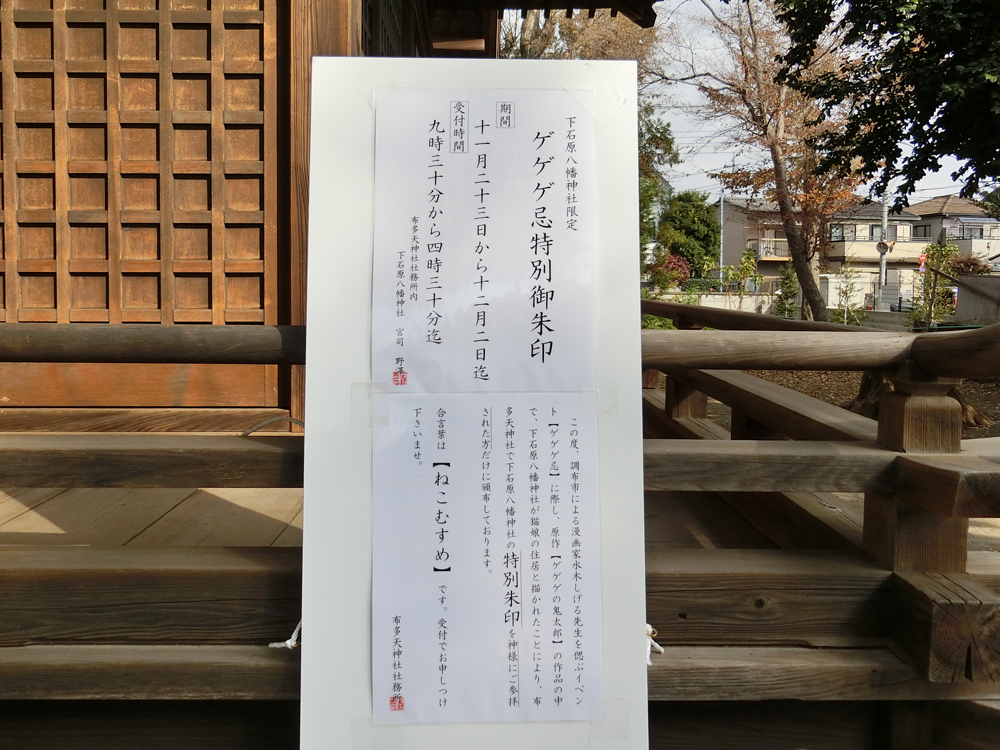 下石原八幡神社限定
ゲゲゲ忌特別御朱印
期間
十一月二十三日から十二月二日迄
受付時間
九時三十分から四時三十分迄
布多天神社社務所内
下石原八幡神社 宮司 野澤
この度、調布市による漫画家水木しげる先生を偲ぶイベン
ト【ゲゲゲ忌】に際し、原作【ゲゲゲの鬼太郎】の作品の中
で、下石原八幡神社が猫娘の住居と描かれたことにより、布
多天神社で下石原八幡神社の特別朱印を神様にご参拝
された方だけに頒布しております。
合言葉は【ねこむすめ】です。受付でお申しつけ
下さいませ。
布多天神社社務所